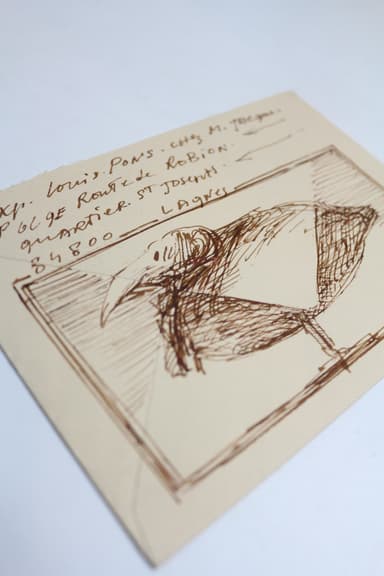 Exp. Louis. PONS. chez M.
Route de ROBION.
QUARTIER. ST JOSEPH.
84800 LAGNES